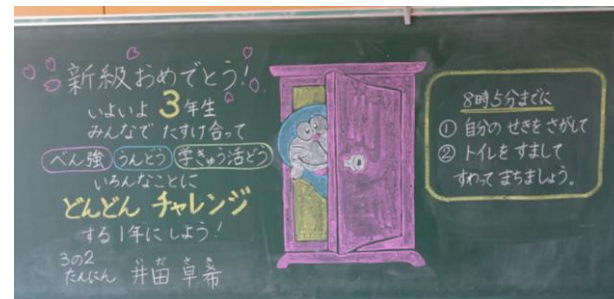 新級おめでとう!
いよいよ 3年生
みんなで たすけ合って
べん強 うんどう 学きゅう活どう
いろんなことに
どんどん チャレンジ
する1年に しよう!
3の2
たんにん 井田 希
8時5分までに
① 自分の せきを さがして
② トイレを すまして
すわって まちましょう。